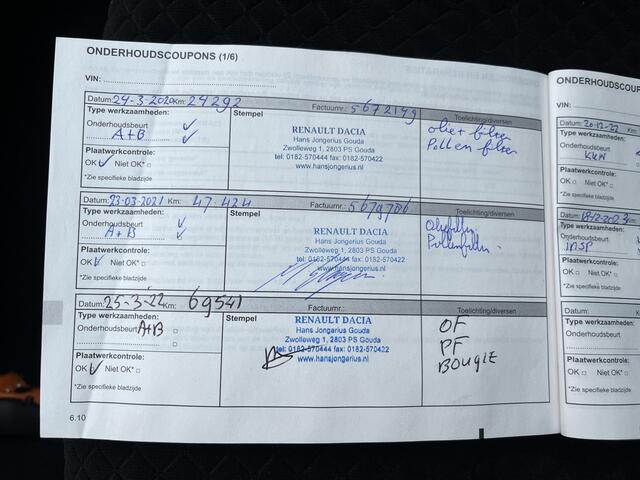 ONDERHOUDSCOUPONS (1/6)
VIN:
Datum: 24-3-2020 Km: 24292 Factuurnr.: 5672149 Toelichting/diversen
Type werkzaamheden: Stempel
Onderhoudsbeurt
A+B
Plaatwerkcontrole:
OK Niet OK*
*Zie specifieke bladzijde
RENAULT DACIA
Hans Jongerius Gouda
Zwolleweg 1, 2803 PS Gouda
tel: 0182-570444 fax: 0182-570442
www.hansjongerius.nl
olie+ filter
Pollen filter
Datum: 23-03-2021 Km: 47.424 Factuurnr.: 5679706 Toelichting/diversen
Type werkzaamheden: Stempel
Onderhoudsbeurt
A+B
Plaatwerkcontrole:
OK Niet OK*
*Zie specifieke bladzijde
RENAULT DACIA
Hans Jongerius Gouda
Zwolleweg 1, 2803 PS Gouda
tel: 0182-570444 fax: 0182-570442
www.hansjongerius.nl
Pollenfilter
Datum: 25-3-22 Km: 69541 Factuurnr.: Toelichting/diversen
Type werkzaamheden: Stempel
Onderhoudsbeurt A+B
Plaatwerkcontrole:
OK Niet OK*
*Zie specifieke bladzijde
RENAULT DACIA
Hans Jongerius Gouda
Zwolleweg 1, 2803 PS Gouda
tel: 0182-570444 fax: 0182-570442
www.hansjongerius.nl
OF
PF
BOUGIE
6.10
ONDERHOUDSCOUP
VIN:
Datum: 20-12-22
Type werkzaamheden:
Onderhoudsbeurt
Plaatwerkcontrole:
OK Niet OK*
*Zie specifieke bladzijde
Datum:
Type werkzaamheden:
Onderhoudsbeurt
INSP
Plaatwerkcontrole:
OK Niet OK*
*Zie specifieke bladzijde
Datum:
Type werkzaamheden:
Onderhoudsbeurt
Plaatwerkcontrole:
OK Niet OK*
*Zie specifieke bladzijde